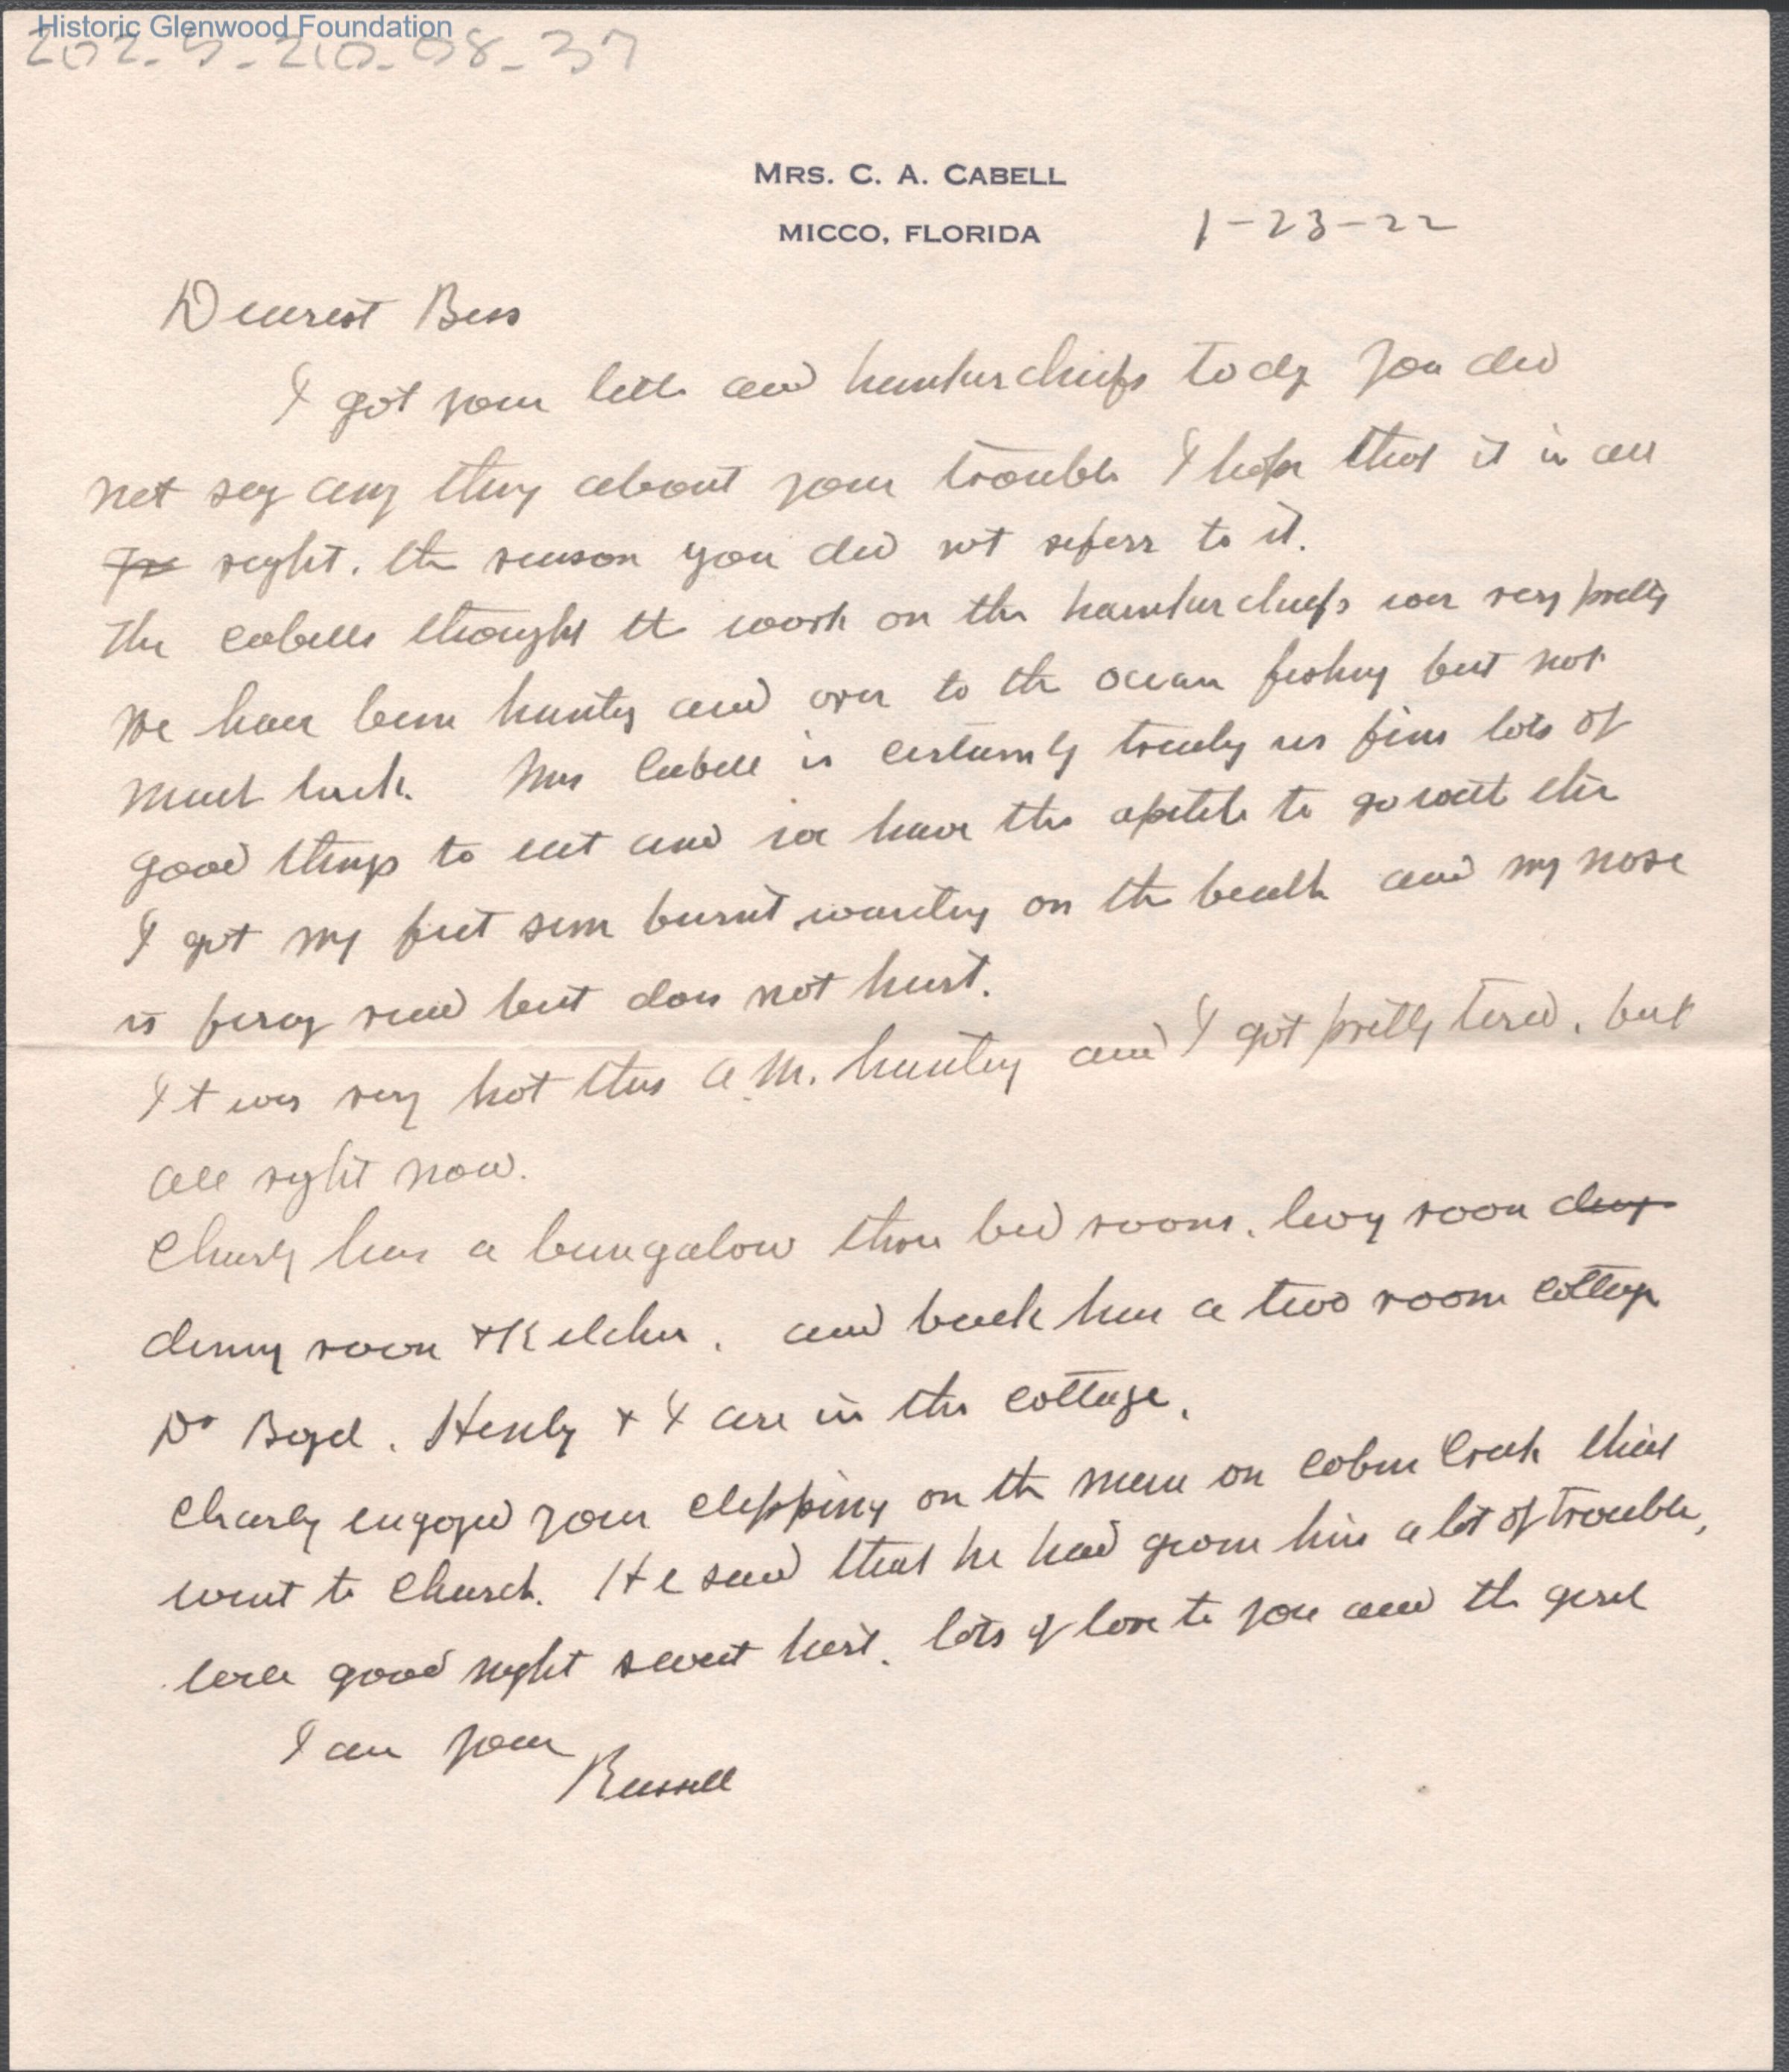 Historic Glenwood Foundation
202-5-210-08-37
MRS. C. A. CABELL
MICCO, FLORIDA
1-23-22
Dearest Bess
I got your and hankurchiefs today you did
not say any thing about your trouble I hope that it is all
right. the reason you did not referr to it.
The Cabells thought the work on the hankurchiefs was very pretty
We have been hunting and over to the ocean fishing but not
much luck. Mrs Cabell is certainly treating us fine lots of
good things to eat and we have the to go with
I got my feet sun burnt on the beach and my nose
is red but does not hurt.
It was very hot this a.m. hunting and I got pretty tired, but
all right now.
Charly has a bungalow three bed rooms, living room
dining room + kitchen, and back has a two room cottage
Dr Boyd, Henly + I are in the cottage.
Charly enjoyed your clipping on the man on Cabin Creek that
went to church. He said that he had given him a lot of trouble,
good night sweet hart. lots of love to you and the
I am your
Russell